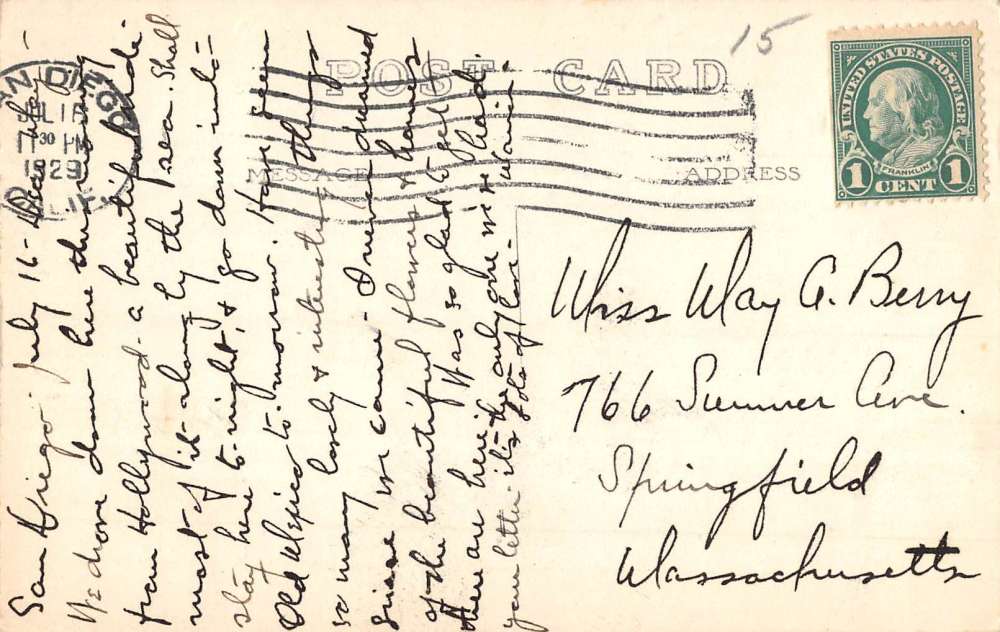 POST CARD
15
MESSAGE
ADDRESS
UNITED STATES POSTAGE
FRANKLIN
1 CENT 1
SAN DIEGO
JUL 16
11 30 PM
1929
CALIF.
San Diego - July 16 - Dear May -
We drove down here this morning
from Hollywood - a beautiful ride -
most of it along by the sea. Shall
stay here to-night, & go down into
Old Mexico to-morrow. Have seen
so many lovely & interesting things
since we came - I never dreamed
of the beautiful flowers & homes
there are here. Was so glad to get
your letter. It's the only one we've heard
Lots of love -
Miss May A. Berry
766 Sumner Ave.
Springfield
Massachusetts